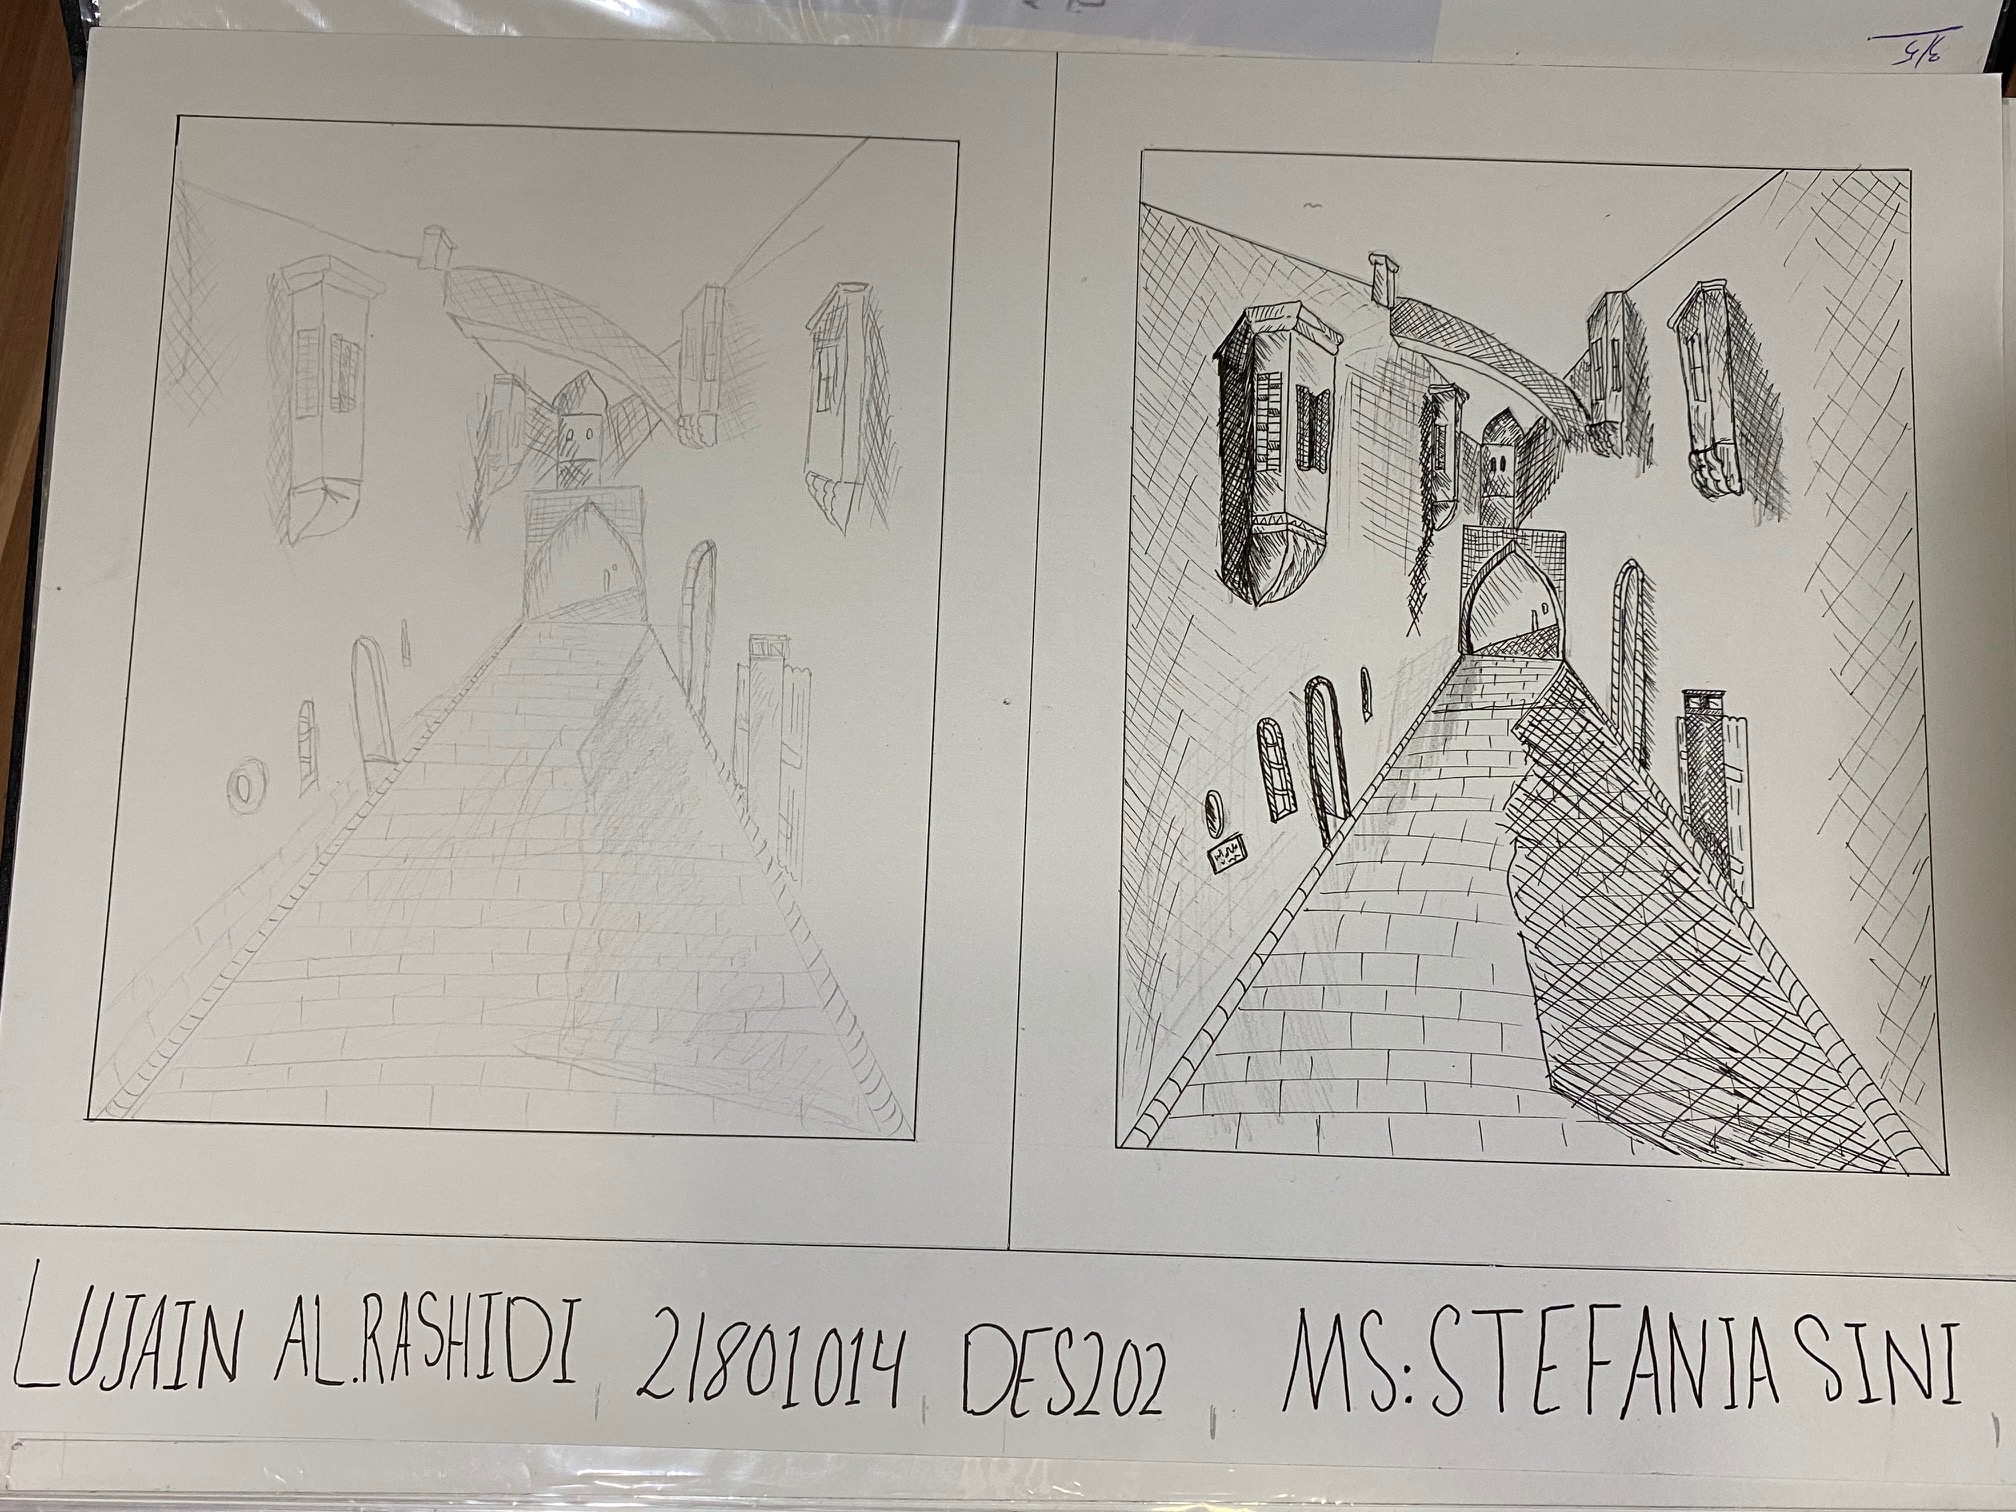 3/5
LUJAIN AL.RASHIDI 21801014 DES202 MS:STEFANIA SINI